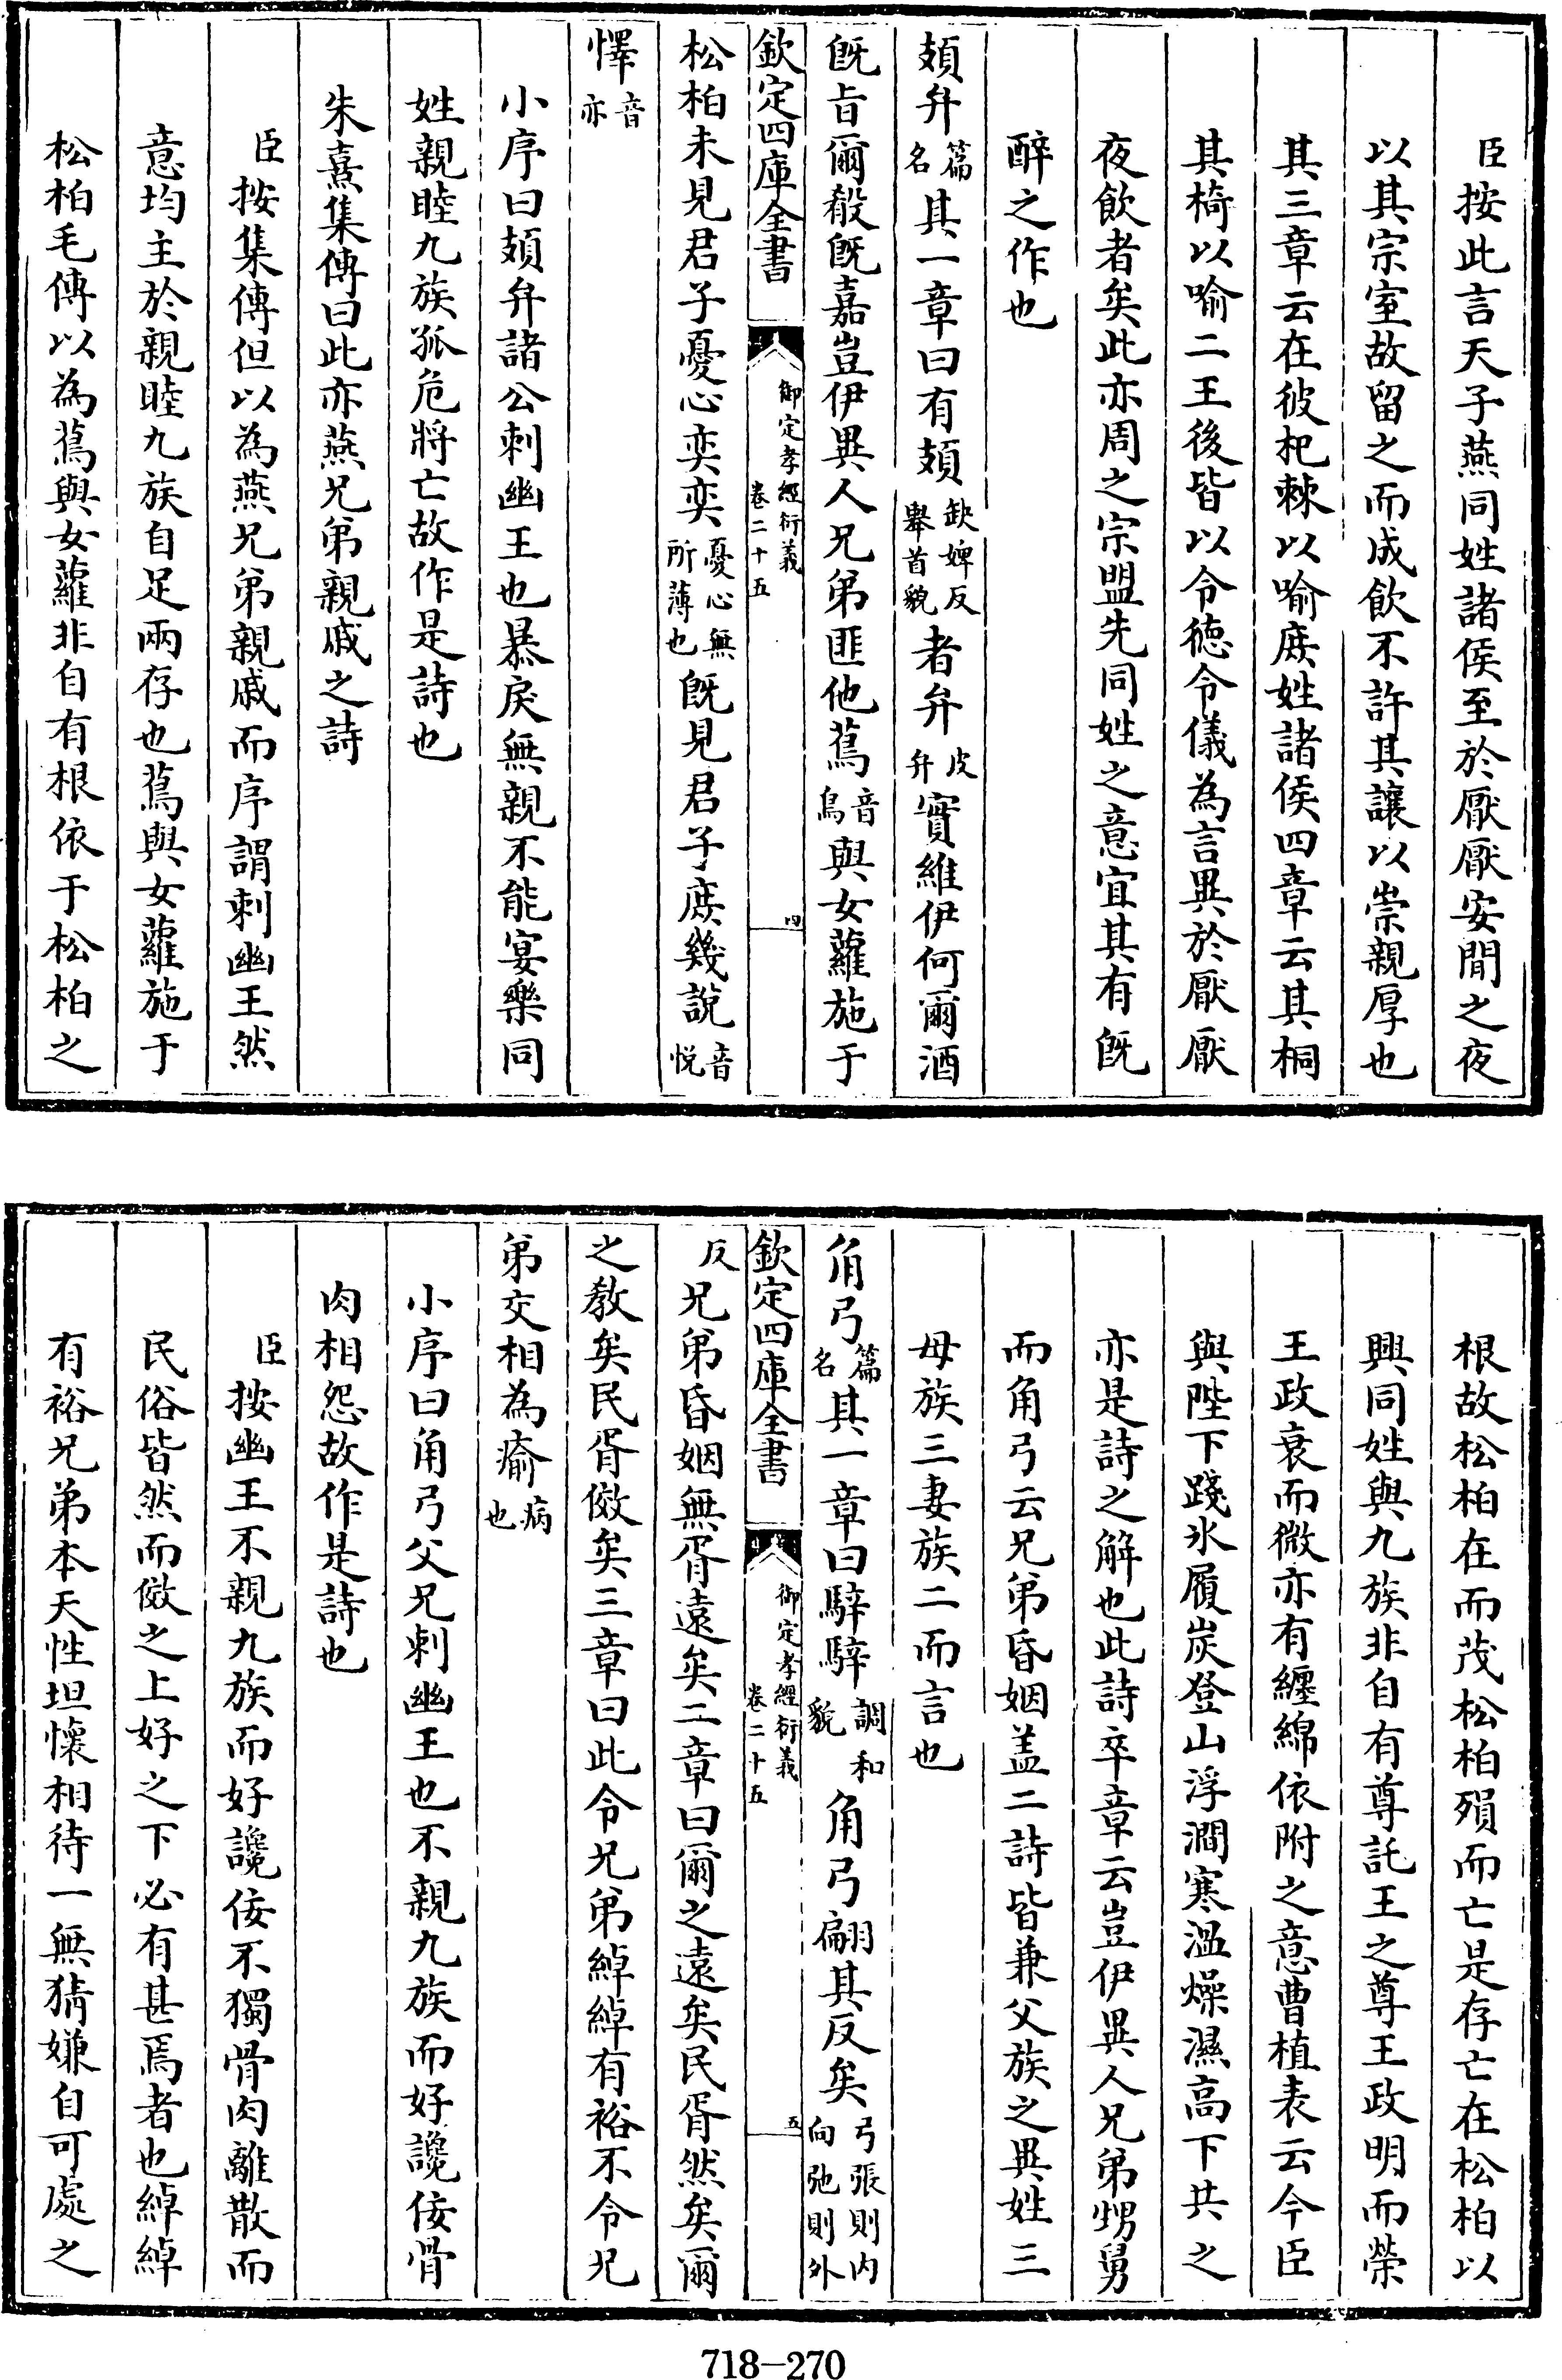 臣按此言天子燕同姓諸侯至於厭厭安閒之夜
以其宗室故留之而成飲不許其讓以崇親厚也
其三章云在彼杞棘以喻庶姓諸侯四章云其桐
其椅以喻二王後皆以令德令儀為言異於厭厭
夜飲者矣此亦周之宗盟先同姓之意宜其有既
醉之作也
頍弁篇名其一章曰有頍缺婢反舉首貌者弁皮弁實維伊何爾酒
既旨爾殽既嘉豈伊異人兄弟匪他蔦音鳥與女蘿施于
欽定四庫全書 御定孝經衍義 卷二十五 四
松柏未見君子憂心奕奕憂心無所薄也既見君子庶幾說音悅
懌音亦
小序曰頍弁諸公刺幽王也暴戾無親不能宴樂同
姓親睦九族孤危將亡故作是詩也
朱熹集傳曰此亦燕兄弟親戚之詩
臣按集傳但以為燕兄弟親戚而序謂刺幽王然
意均主於親睦九族自足兩存也蔦與女蘿施于
松柏毛傳以為蔦與女蘿非自有根依于松柏之
根故松柏在而茂松柏殞而亡是存亡在松柏以
興同姓與九族非自有尊託王之尊王政明而榮
王政衰而微亦有纏綿依附之意曹植表云今臣
與陛下踐氷履炭登山浮澗寒溫燥濕高下共之
亦是詩之解也此詩卒章云豈伊異人兄弟甥舅
而角弓云兄弟昏姻葢二詩皆兼父族之異姓三
母族三妻族二而言也
角弓篇名其一章曰騂騂調和貌角弓翩其反矣弓張則內向弛則外
欽定四庫全書 御定孝經衍義 卷二十五 五
反兄弟昏姻無胥遠矣二章曰爾之遠矣民胥然矣爾
之教矣民胥傚矣三章曰此令兄弟綽綽有裕不令兄
弟交相為瘉病也
小序曰角弓父兄刺幽王也不親九族而好讒佞骨
肉相怨故作是詩也
臣按幽王不親九族而好讒佞不獨骨肉離散而
民俗皆然而傚之上好之下必有甚焉者也綽綽
有裕兄弟本天性坦懷相待一無猜嫌自可處之
718-270